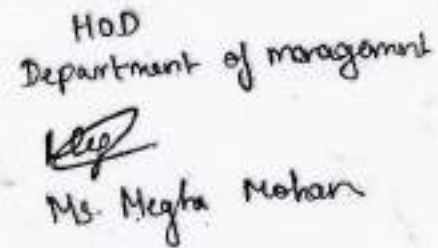 HOD
Department of management
Ms. Megha Mohan